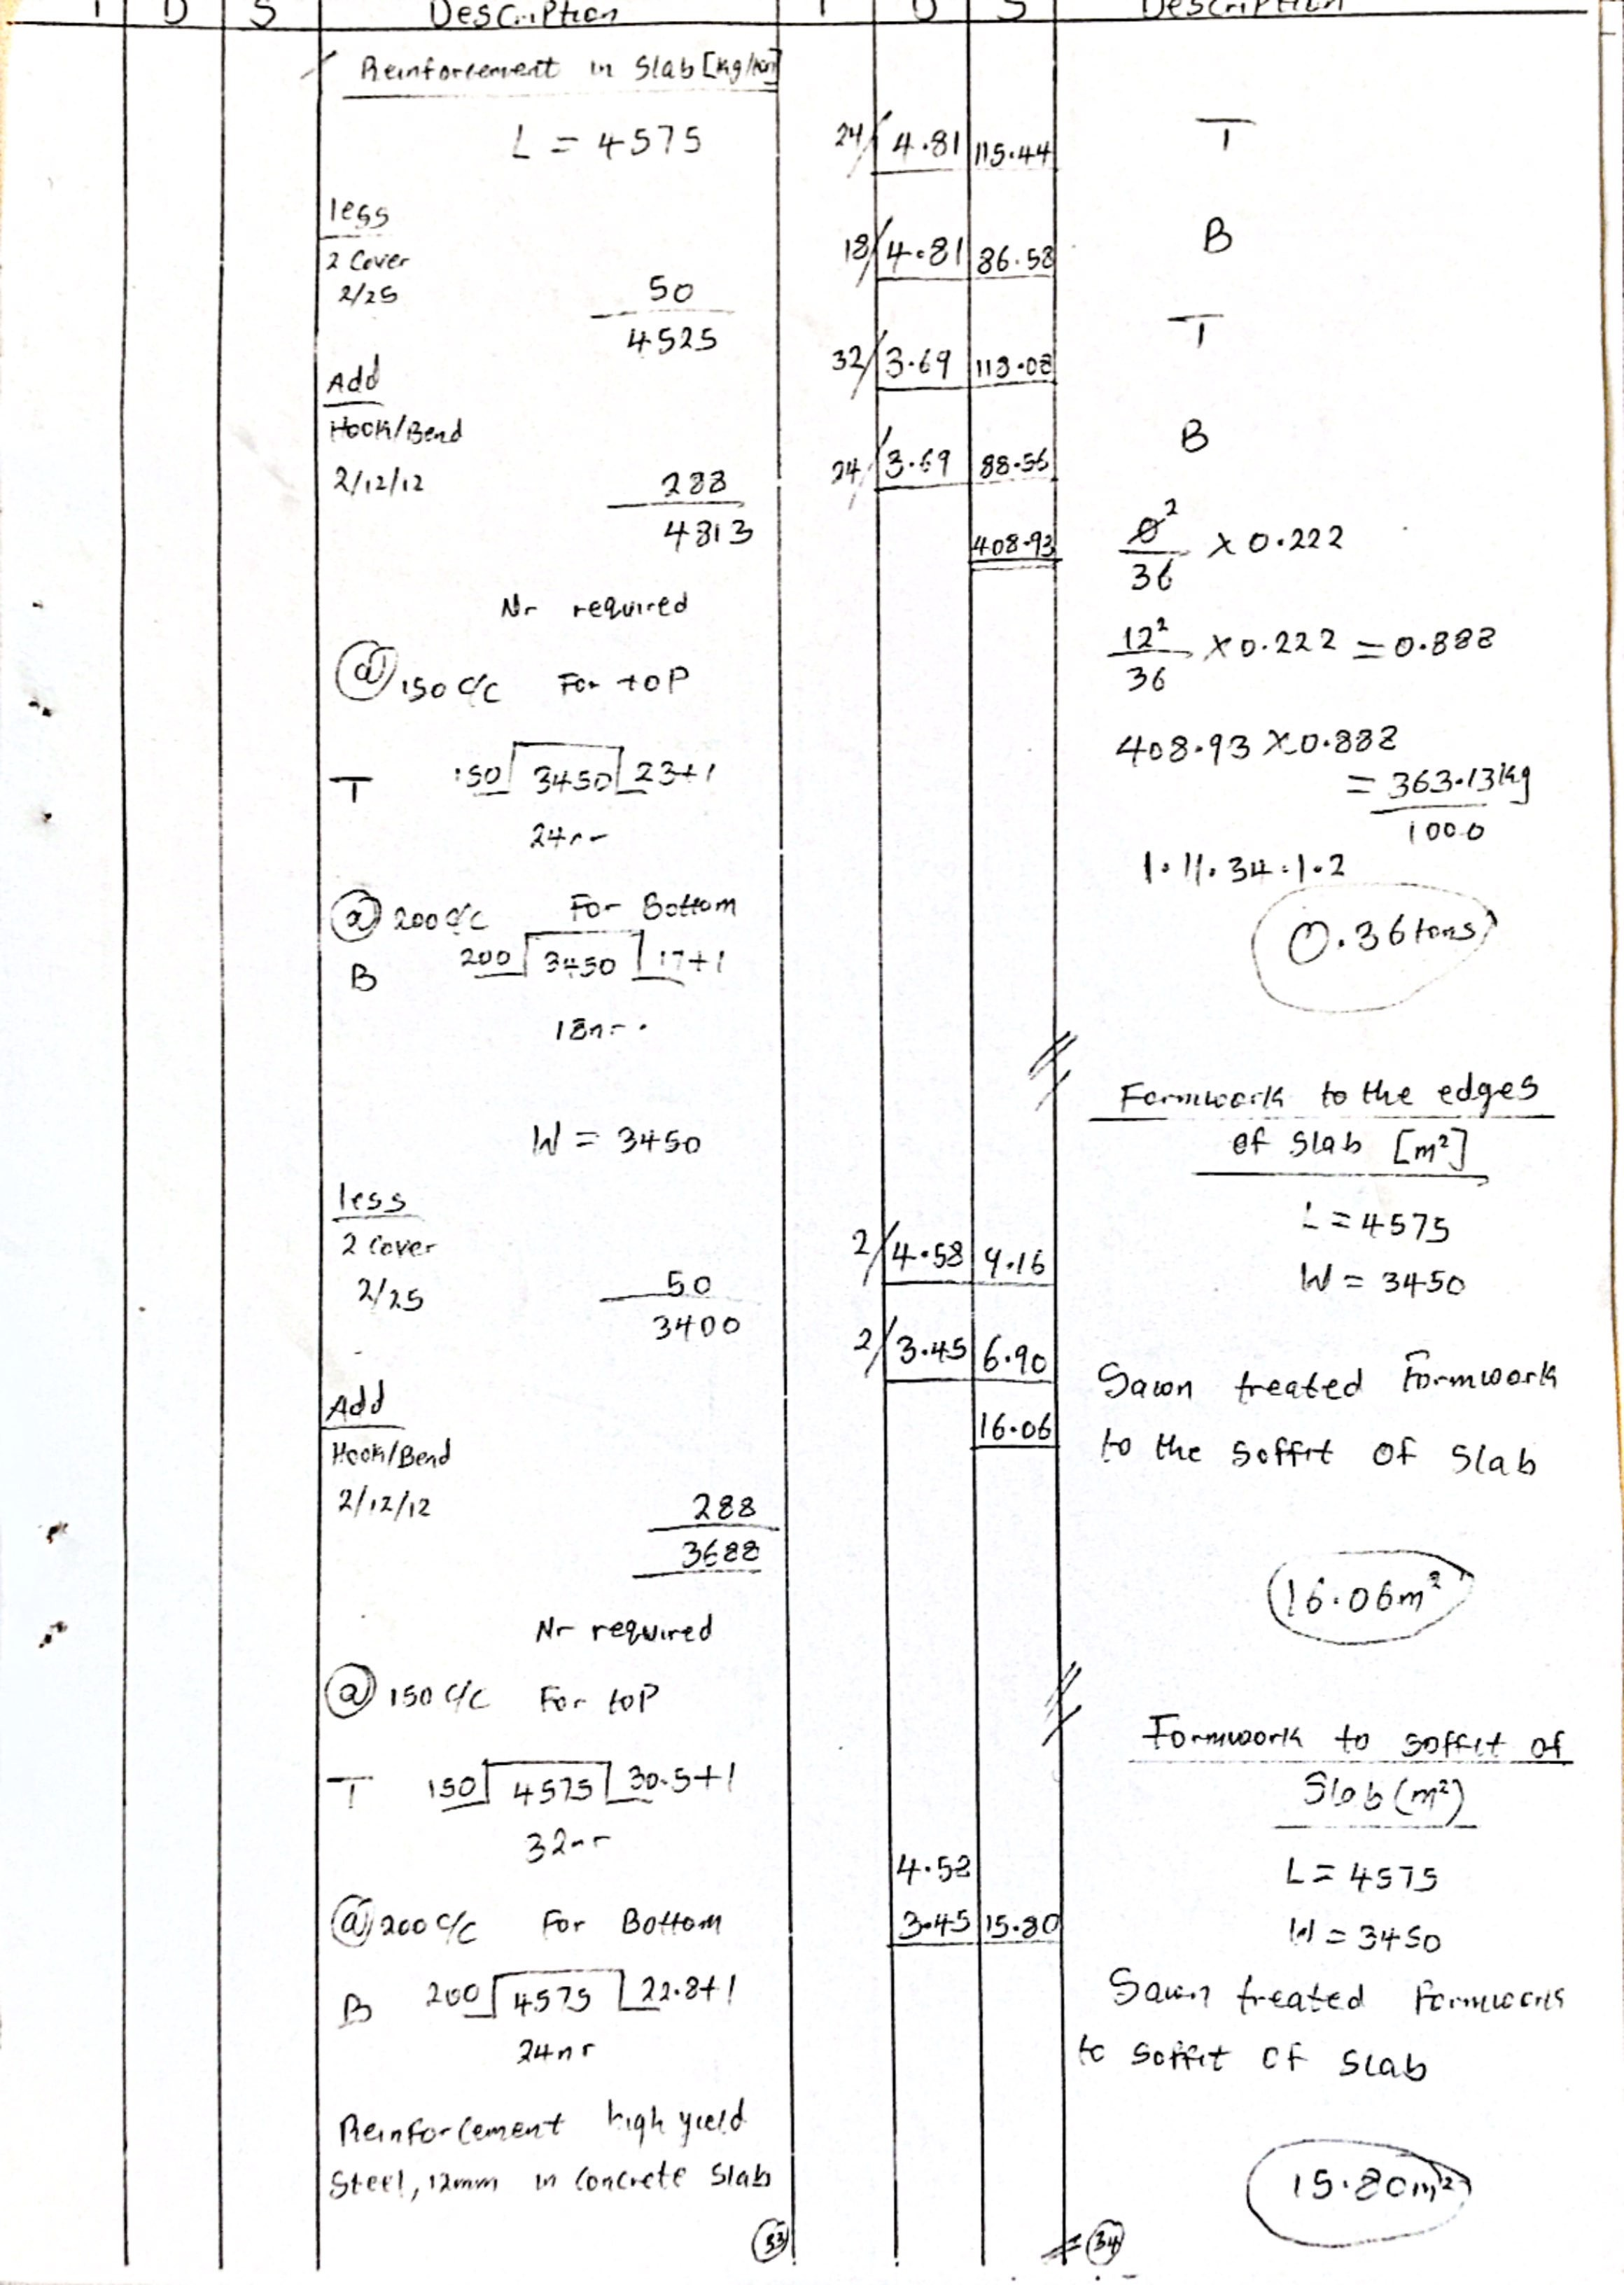 T D S Description T D S Description
Reinforcement in Slab [kg/km]
L = 4575
less
2 Cover
2/25 50
4525
Add
Hook/Bend
2/12/12 288
4813
Nr required
@ 150 c/c For top
T 150 3450 23+1
24nr
@ 200 c/c For Bottom
B 200 3450 17+1
18nr.
W = 3450
less
2 Cover
2/25 50
3400
Add
Hook/Bend
2/12/12 288
3688
Nr required
@ 150 c/c For top
T 150 4575 30.5+1
32nr
@ 200 c/c For Bottom
B 200 4575 22.8+1
24nr
Reinforcement high yield
Steel, 12mm in Concrete Slab
33
24/ 4.81 115.44 T
18/ 4.81 86.58 B
32/ 3.69 118.08 T
24/ 3.69 88.56 B
408.93
ø²/36 × 0.222
12²/36 × 0.222 = 0.888
408.93 × 0.888
= 363.13kg
1000
1.11.34.1.2
0.36tons
Formwork to the edges
of Slab [m²]
L = 4575
2/ 4.58 9.16
W = 3450
2/ 3.45 6.90
Sawn treated Formwork
16.06
to the Soffit of Slab
16.06m²
Formwork to soffit of
Slab (m²)
4.58
L = 4575
3.45 15.80
W = 3450
Sawn treated Formwork
to soffit of Slab
15.80m²
34